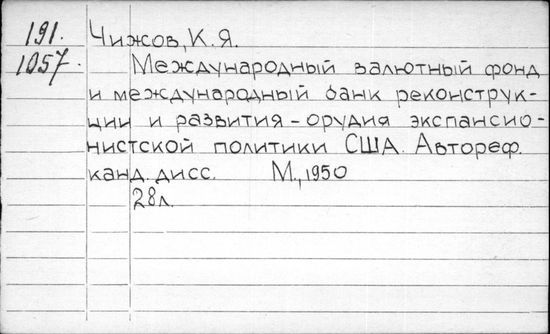 191. Чижов, К.Я.
1057. Международный валютный фонд
и международный банк реконструк-
ции и развития – орудия экспансио-
нистской политики США. Автореф.
канд. дисс. М., 1950
28л.